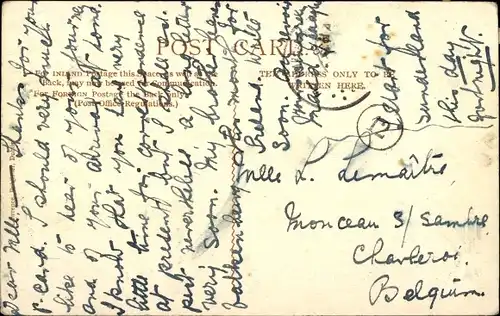 POST CARD
FOR INLAND Postage this Space, as well as the
Back, may now be used for Communication.
For FOREIGN Postage the Back only.
(Post Office Regulations.)
THE ADDRESS ONLY TO BE
WRITTEN HERE.
Dear Mlle. Thanks for your
p. card. I should very much
like to hear of your journey
and of your arrival at
I know that you have very
little time for correspondence
at present but
nevertheless a letter
very soon. My brother
for
Ireland. Write
soon.
I start for
Sunderland
this day
fortnight.
Mlle L. Lemaître,
Monceau s/ Sambre
Charleroi.
Belgium.